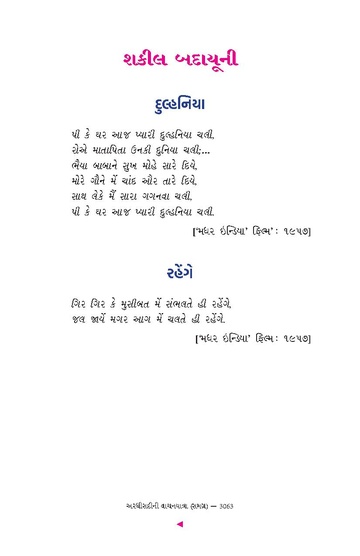 શકીલ બદાયૂની
દુલ્હનિયા
પી કે ઘર આજ પ્યારી દુલ્હનિયા ચલી.
રોએ માતાપિતા ઉનકી દુનિયા ચલી;...
ભૈયા બાબાને સુખ મોહે સારે દિયે.
મોરે ગૌને મેં ચાંદ ઔર તારે દિયે.
સાથ લેકે મૈં સારા ગગનવા ચલી.
પી કે ઘર આજ પ્યારી દુલ્હનિયા ચલી.
['મધર ઇન્ડિયા' ફિલ્મ : ૧૯૫૭]
રહેંગે
ગિર ગિર કે મુસીબત મેં સંભલતે હી રહેંગે.
જલ જાયેં મગર આગ મેં ચલતે હી રહેંગે.
['મધર ઇન્ડિયા' ફિલ્મ : ૧૯૫૭]
અરધીસદીની વાચનયાત્રા (સમગ્ર) — 3063